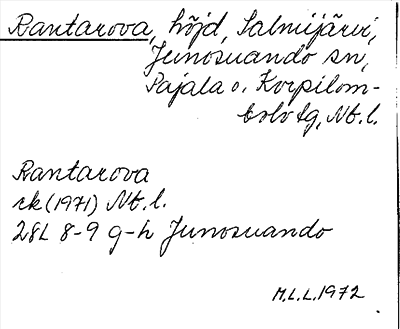 Rantarova, höjd, Salmijärvi,
Junosuando sn,
Pajala o. Korpilom-
bolo tg, Nb.l.
Rantarova
rk (1971) Nb.l.
28L 8-9 g-h Junosuando
M.L.L. 1972